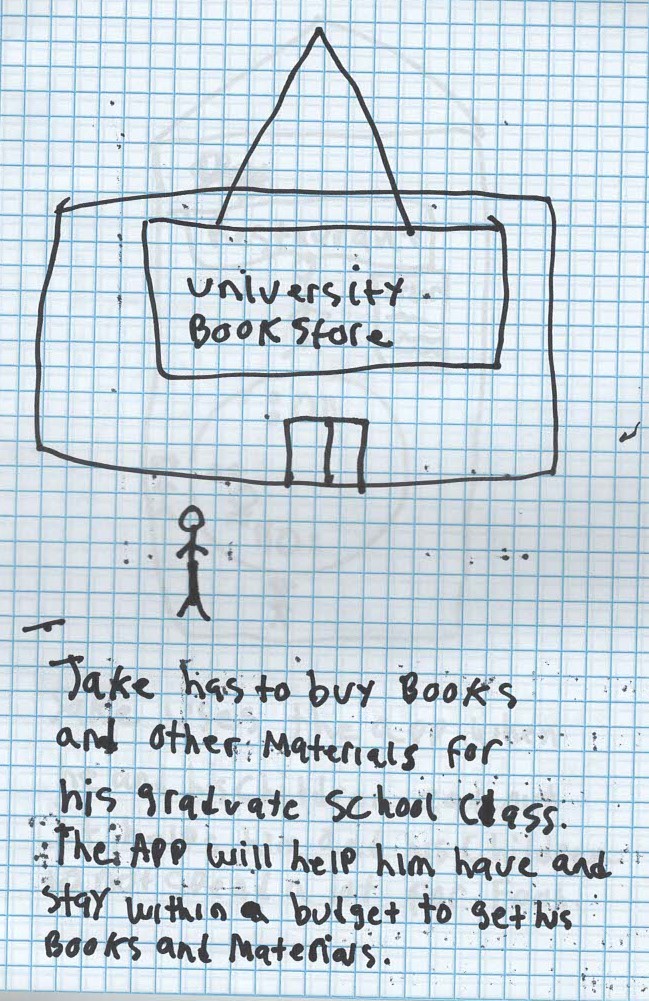 University.
Book Store
Jake has to buy Books
and other Materials for
his graduate School Class.
The APP will help him have and
Stay within a budget to get his
Books and Materials.